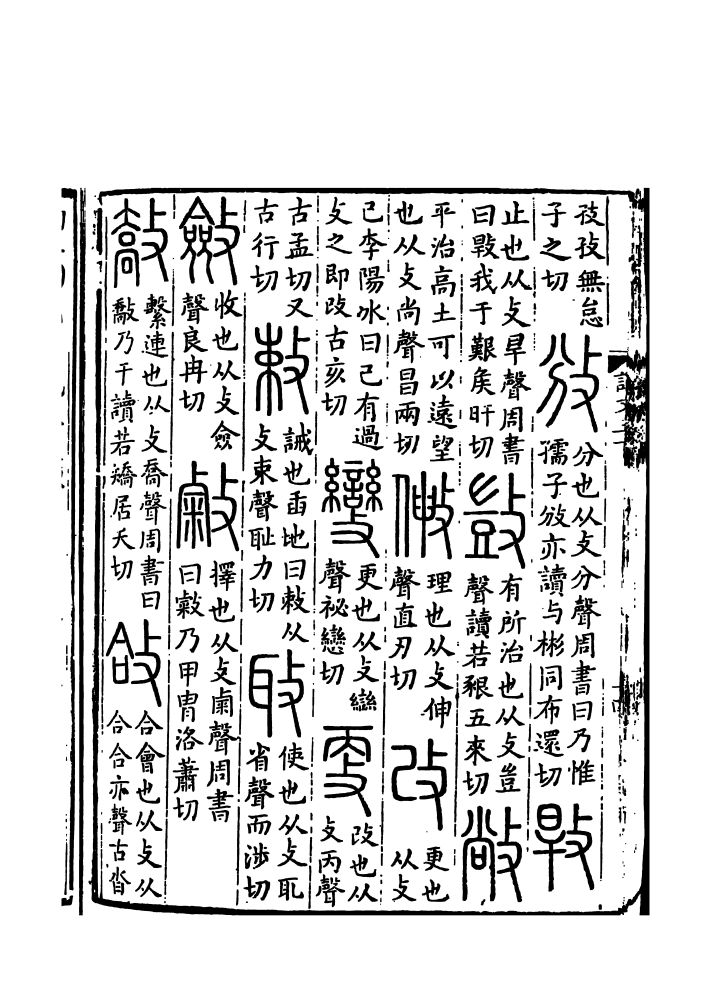 孜孜無怠子之切攽分也从攴分聲周書曰乃惟孺子攽亦讀与彬同布還切𢾕
止也从攴旱聲周書曰𢾕我于艱矦旰切敳有所治也从攴豈聲讀若豤五來切敞
平治高土可以遠望也从攴尚聲昌兩切敒理也从攴伸聲直刃切改更也从攴
己李陽冰曰己有過攴之即改古亥切變更也从攴䜌聲祕戀切㪅改也从攴丙聲
古孟切又古行切敕誡也臿地曰敕从攴束聲恥力切使也从攴耴省聲而涉切
斂收也从攴僉聲良冉切敹擇也从攴聲周書曰敹乃甲冑洛蕭切
敽繫連也从攴喬聲周書曰敽乃干讀若矯居夭切敆合會也从攴从合合亦聲古沓